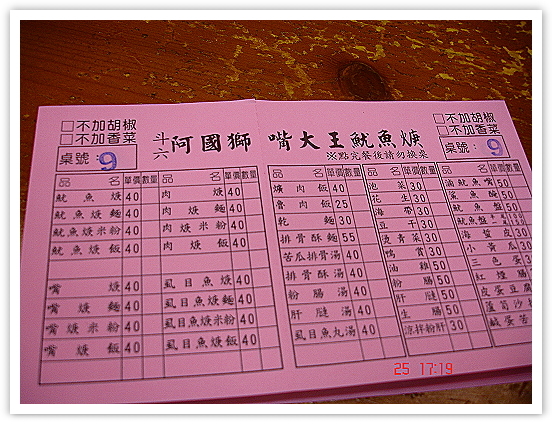 □不加胡椒
□不加香菜
桌號: 9
斗六 阿國獅 嘴大王魷魚焿
※點完餐後請勿換桌
□不加胡椒
□不加香菜
桌號: 9
品名 單價 數量 品名 單價 數量
魷魚焿 40 肉焿 40
魷魚焿麵 40 肉焿麵 40
魷魚焿米粉 40 肉焿米粉 40
魷魚焿飯 40 肉焿飯 40
嘴焿 40 虱目魚焿 40
嘴焿麵 40 虱目魚焿麵 40
嘴焿米粉 40 虱目魚焿米粉 40
嘴焿飯 40 虱目魚焿飯 40
品名 單價 數量 品名 單價 數量 品名 單價 數量
爌肉飯 40 泡菜 30 滷魷魚嘴 50
魯肉飯 25 花生 30 鯊魚 50
乾麵 30 海帶 30 魷魚盤 50
排骨酥麵 55 豆干 30 魷魚盤
苦瓜排骨湯 40 燙青菜 30 海蜇皮 30
排骨酥湯 40 鴨賞 30 小黃瓜 30
粉腸湯 40 油雞 50 三色蛋 30
肝腱湯 40 粉腸 50 紅燒腸
虱目魚丸湯 40 肝腱 50 皮蛋豆腐
生腸 50 蘆筍沙
涼拌粉肝 30 鹹蛋苦
25 17:19